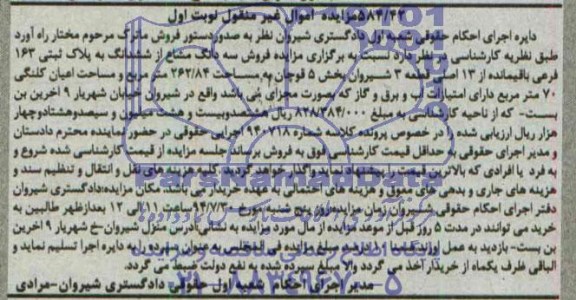 ۵۸۴/۴۳مزایده اموال غیر منقول نوبت اول
دایره اجرای احکام حقوقی شعبه اول دادگستری شیروان نظر به صدوردستور فروش ماترک مرحوم مختار راه آورد
طبق نظریه کارشناسی در نظر دارد نسبت به برگزاری مزایده فروش سه دانگ مشاع از ششدانگ به پلاک ثبتی ۱۶۳
فرعی باقیمانده از ۱۳ اصلی قطعه ۳ شیروان بخش ۵ قوچان به مساحت ۲۶۲/۸۴ متر مربع و مساحت اعیان کلنگی
۷۰ متر مربع دارای امتیازات آب و برق و گاز که بصورت مجزای می باشد واقع در شیروان خیابان شهریار ۹ اخرین بن
بست- که از ناحیه کارشناسی به مبلغ ۸۲۸/۳۸۴/۰۰۰ ریال هشتصدوبیست و هشت میلیون و سیصدوهشتادوچهار
هزار ریال ارزیابی شده را در خصوص پرونده کلاسه شماره ۹۴۰۷۱۸ اجرایی حقوقی در حضور نماینده محترم دادستان
و مدیر اجرای حقوقی به حداقل قیمت کارشناسی فوق به فروش برساند جلسه مزایده از قیمت کارشناسی شده شروع و
به فرد یا افرادی که بالاترین قیمت را پیشنهاد نمایند واگذار خواهد گردید. کلیه هزینه های نقل و انتقال و تنظیم سند و
هزینه های جاری و بدهی های معوق و هزینه های احتمالی به عهده خریدار می باشد مکان مزایده:دادگستری شیروان
دفتر اجرای احکام حقوقی شیروان زمان مزایده:روز پنج شنبه مورخ ۹۴/۷/۳۰ساعت ۱۱ الی ۱۲ بعدازظهر طالبین به
خرید می توانند در مدت ۵ روز قبل از موعد مزایده از مال مورد مزایده به نشانی:آدرس منزل شیروان-خ شهریار ۹ اخرین
بن بست- بازدید به عمل اورند ضمنا ده درصد مبلغ مزایده فی المجلس به عنوان سپرده به دایره اجرا تسلیم نماید و
الباقی ظرف یکماه از خریدار آخذ می گردد والا مبلغ سپرده شده به نفع دولت ضبط می گردد.
مدیر اجرای احکام شعبه اول حقوقی دادگستری شیروان-مرادی